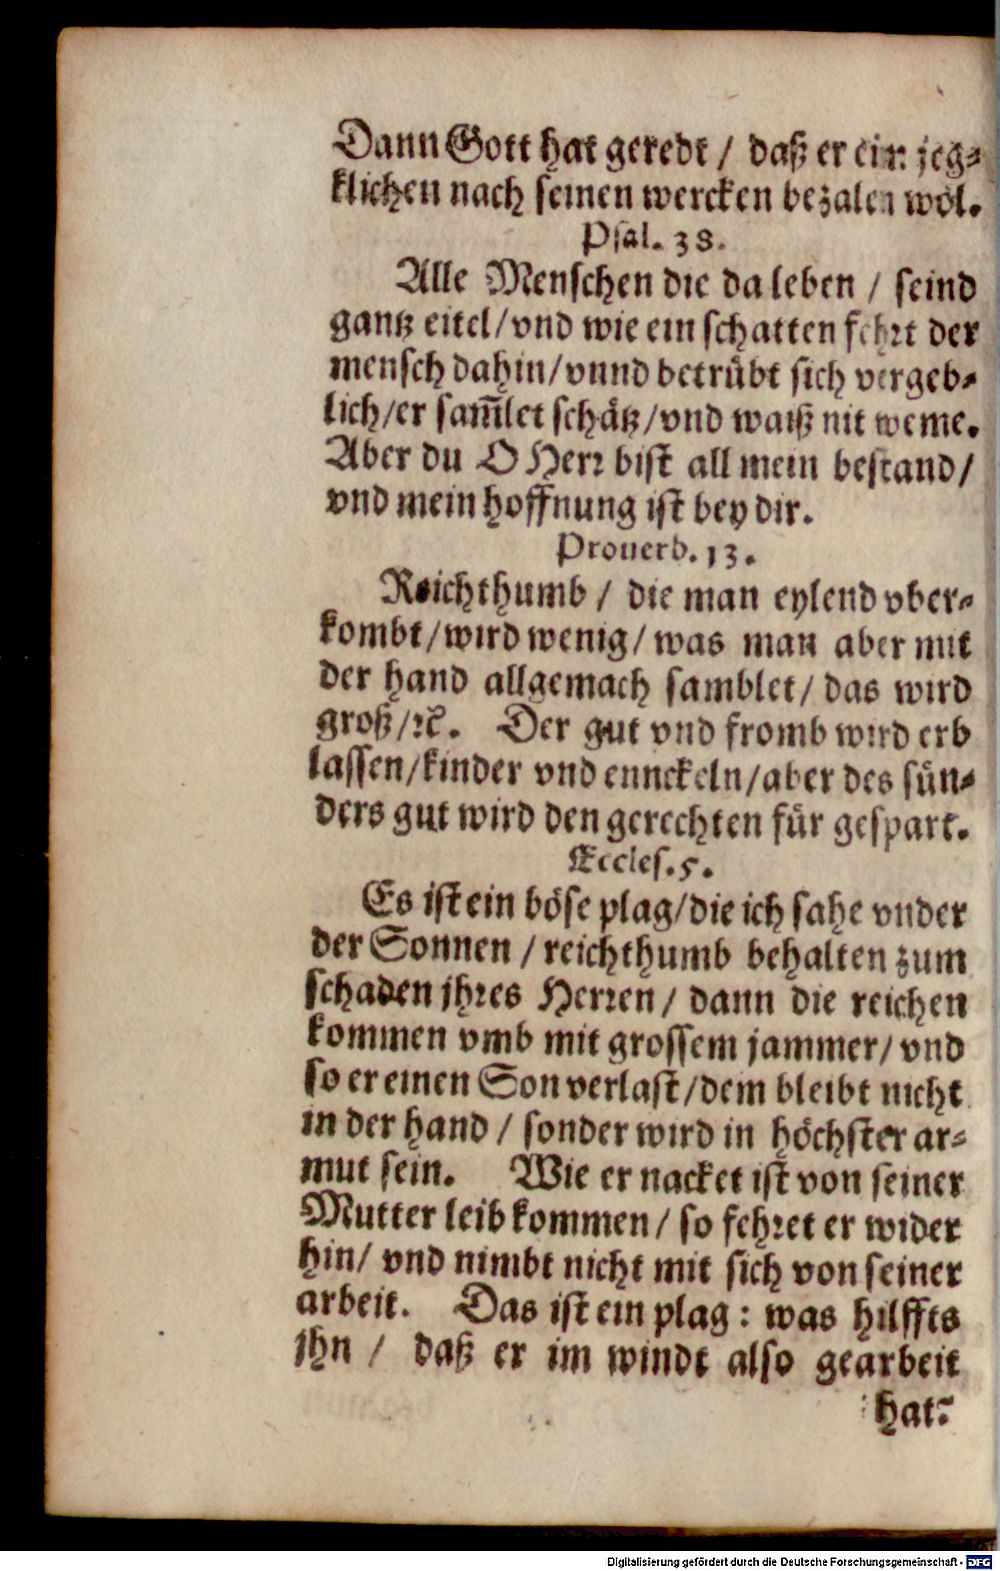 Dann Gott hat geredt / daß er ein jeg-
klichen nach seinen wercken bezalen wöl.
Psal. 38.
Alle Menschen die da leben / seind
gantz eitel / vnd wie ein schatten fehrt der
mensch dahin / vnnd betrübt sich vergeb-
lich / er sam̃let schätz / vnd waiß nit weme.
Aber du O Herr bist all mein bestand /
vnd mein hoffnung ist bey dir.
Prouerb. 13.
Reichthumb / die man eylend vber-
kombt / wird wenig / was man aber mit
der hand allgemach samblet / das wird
groß / ꝛc. Der gut vnd fromb wird erb
lassen / kinder vnd ennckeln / aber des sün-
ders gut wird den gerechten für gespart.
Eccles. 5.
Es ist ein böse plag / die ich sahe vnder
der Sonnen / reichthumb behalten zum
schaden jhres Herren / dann die reichen
kommen vmb mit grossem jammer / vnd
so er einen Son verlast / dem bleibt nicht
in der hand / sonder wird in höchster ar-
mut sein. Wie er nacket ist von seiner
Mutter leib kommen / so fehret er wider
hin / vnd nimbt nicht mit sich von seiner
arbeit. Das ist ein plag : was hilffts
jhn / daß er im windt also gearbeit
hat?
Digitalisierung gefördert durch die Deutsche Forschungsgemeinschaft - DFG